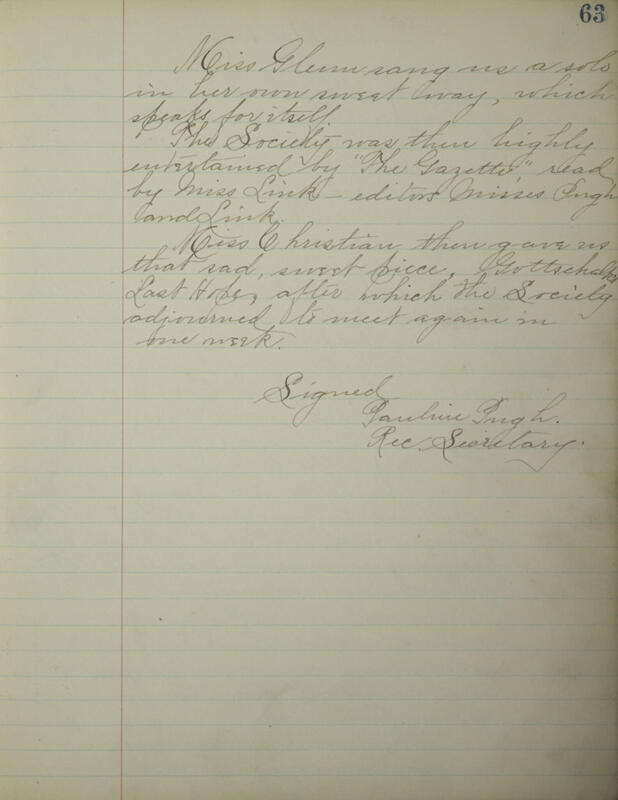 63
Miss Glenn sang us a solo
in her own sweet way, which
speaks for itself.
The Society was then highly
entertained by "The Gazette," read
by Miss Link – editors Misses Pugh
and Link.
Miss Christian then gave us
that sad, sweet piece, Gottschalk's
Last Hope, after which the Society
adjourned to meet again in
one week.
Signed
Pauline Pugh.
Rec. Secretary.